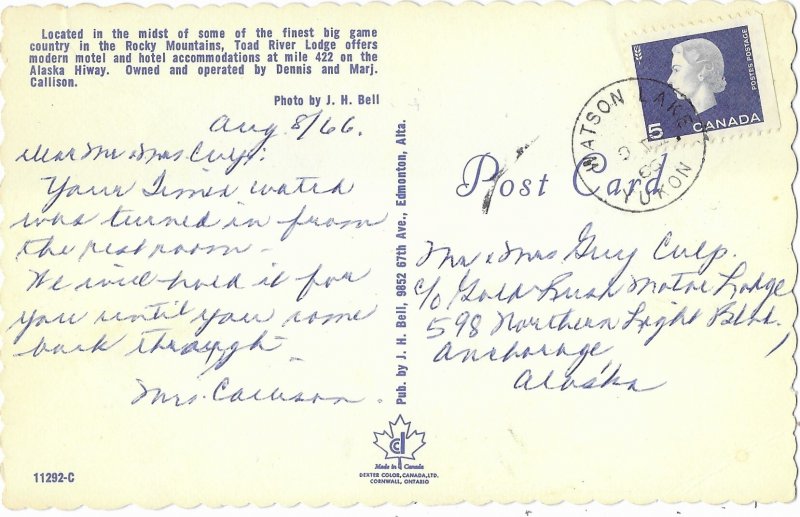 Located in the midst of some of the finest big game
country in the Rocky Mountains, Toad River Lodge offers
modern motel and hotel accommodations at mile 422 on the
Alaska Hiway. Owned and operated by Dennis and Marj.
Callison.
Photo by J. H. Bell
Aug 8/66.
Dear Mr & Mrs Culp:
Your Timex watch
was turned in from
the rest room -
We will hold it for
you until you come
back through -
Mrs. Callison.
11292-C
Pub. by J. H. Bell, 9852 67th Ave., Edmonton, Alta.
Made in Canada
DEXTER COLOR, CANADA, LTD.
CORNWALL, ONTARIO
Post Card
5
CANADA
POSTES POSTAGE
WATSON LAKE
YUKON
Mr & Mrs Guy Culp.
c/o Gold Rush Motor Lodge
598 Northern Light Blvd.,
Anchorage
Alaska